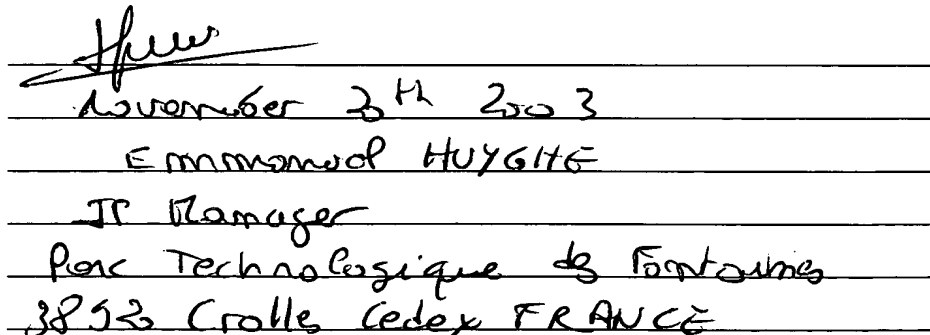 November 20th 2003
Emmanuel HUYGHE
IP Manager
Parc Technologique des Fontaines
38920 Crolles Cedex FRANCE